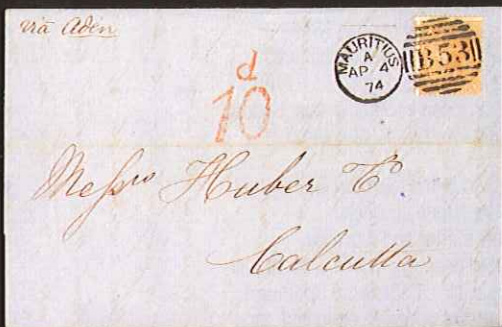 via Aden
MAURITIUS
A
AP 4
74
B53
d
10
Messrs Huber Co
Calcutta